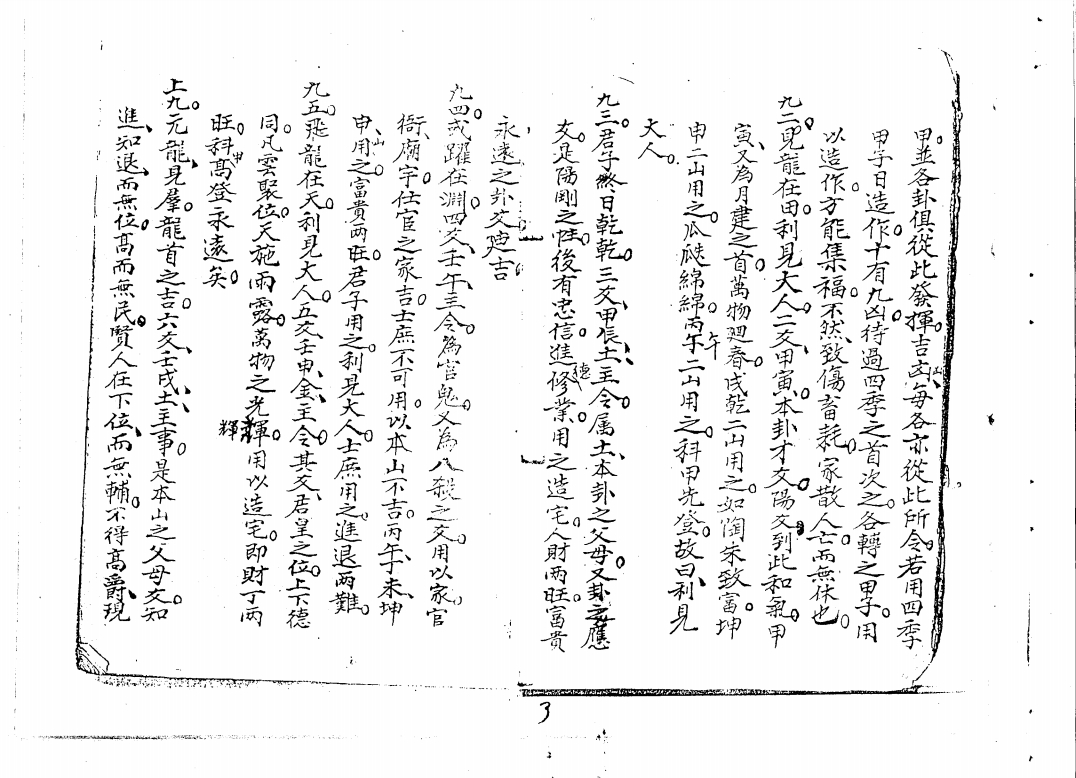 甲並各卦俱從此發揮吉凶山每各亦從此所令若用四季
甲子日造作十有九凶待過四季之首次之各轉之甲子用
以造作方能集福不然致傷畜耗家散人亡而無休也
九二見龍在田利見大人二爻甲寅本卦才爻陽爻到此和氣甲
寅又為月建之首萬物廻春戌乾二山用之如陶朱致富坤
申二山用之瓜瓞綿綿丙午二山用之科甲先登故曰利見
大人
九三君子終日乾乾三爻甲辰土主令属土本卦之父母又卦之應
爻是陽剛之性後有忠信進德修業用之造宅人財兩旺富貴
永遠之卦爻迪吉
九四或躍在淵四爻壬午主令為官鬼又為八殺之爻用以家官
衙廟宇仕宦之家吉士庶不可用以本山不吉丙午未坤
申山用之富貴兩旺君子用之利見大人士庶用之進退兩難
九五飛龍在天利見大人五爻壬申金主令其爻君皇之位上下德
同凡雲聚位天施雨露萬物之光輝用以造宅即財丁兩
旺科甲高登永遠矣
上九亢龍見羣龍首之吉六爻壬戌土主事是本山之父母爻知
進知退而無位高而無民賢人在下位而無輔不得高爵現
3